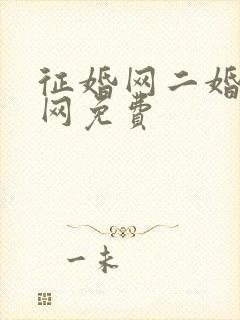 征婚网二婚
网免费
一未